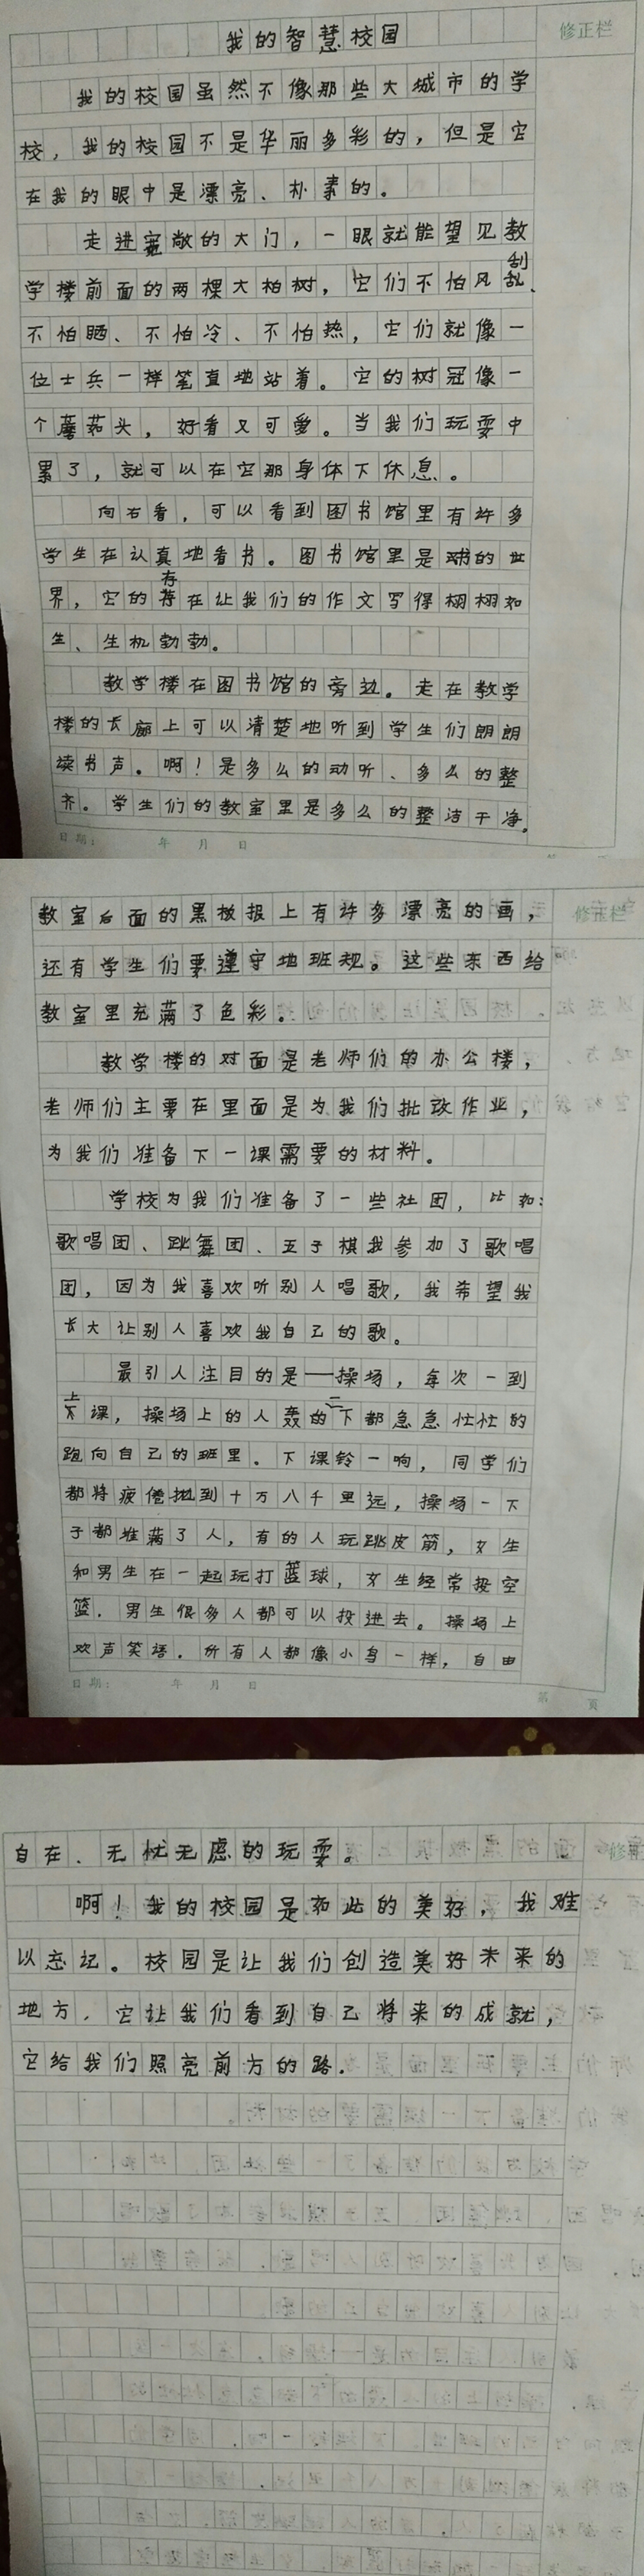 我的智慧校园
修正栏
我的校园虽然不像那些大城市的学
校，我的校园不是华丽多彩的，但是它
在我的眼中是漂亮、朴素的。
走进宽敞的大门，一眼就能望见教
学楼前面的两棵大柏树，它们不怕风刮、
不怕晒、不怕冷、不怕热，它们就像一
位士兵一样笔直地站着。它的树冠像一
个蘑菇头，好看又可爱。当我们玩耍中
累了，就可以在它那身体下休息。
向右看，可以看到图书馆里有许多
学生在认真地看书。图书馆里是球的世
界，它的存在让我们的作文写得栩栩如
生、生机勃勃。
教学楼在图书馆的旁边。走在教学
楼的长廊上可以清楚地听到学生们朗朗
读书声。啊！是多么的动听、多么的整
齐。学生们的教室里是多么的整洁干净。
日期： 年 月 日
教室后面的黑板报上有许多漂亮的画，
修正栏
还有学生们要遵守地班规。这些东西给
教室里充满了色彩。
教学楼的对面是老师们的办公楼，
老师们主要在里面是为我们批改作业，
为我们准备下一课需要的材料。
学校为我们准备了一些社团，比如：
歌唱团、跳舞团、五子棋我参加了歌唱
团，因为我喜欢听别人唱歌，我希望我
长大让别人喜欢我自己的歌。
最引人注目的是——操场，每次一到
上课，操场上的人轰的一下都急急忙忙的
跑向自己的班里。下课铃一响，同学们
都将疲倦抛到十万八千里远，操场一下
子都堆满了人，有的人玩跳皮筋，女生
和男生在一起玩打篮球，女生经常投空
篮．男生很多人都可以投进去。操场上
欢声笑语．所有人都像小鸟一样，自由
日期： 年 月 日
第 页
自在．无忧无虑的玩耍。
修
啊！我的校园是如此的美好，我难
以忘记。校园是让我们创造美好未来的
地方．它让我们看到自己将来的成就，
它给我们照亮前方的路．